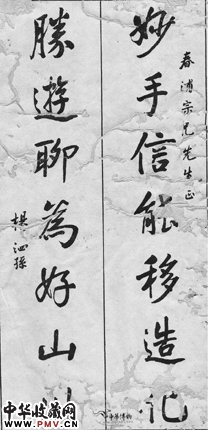 春浦宗兄先生正
妙手信能移造化
勝遊聊為好山
楊沂孫
中华收藏网
www.PMV.cn